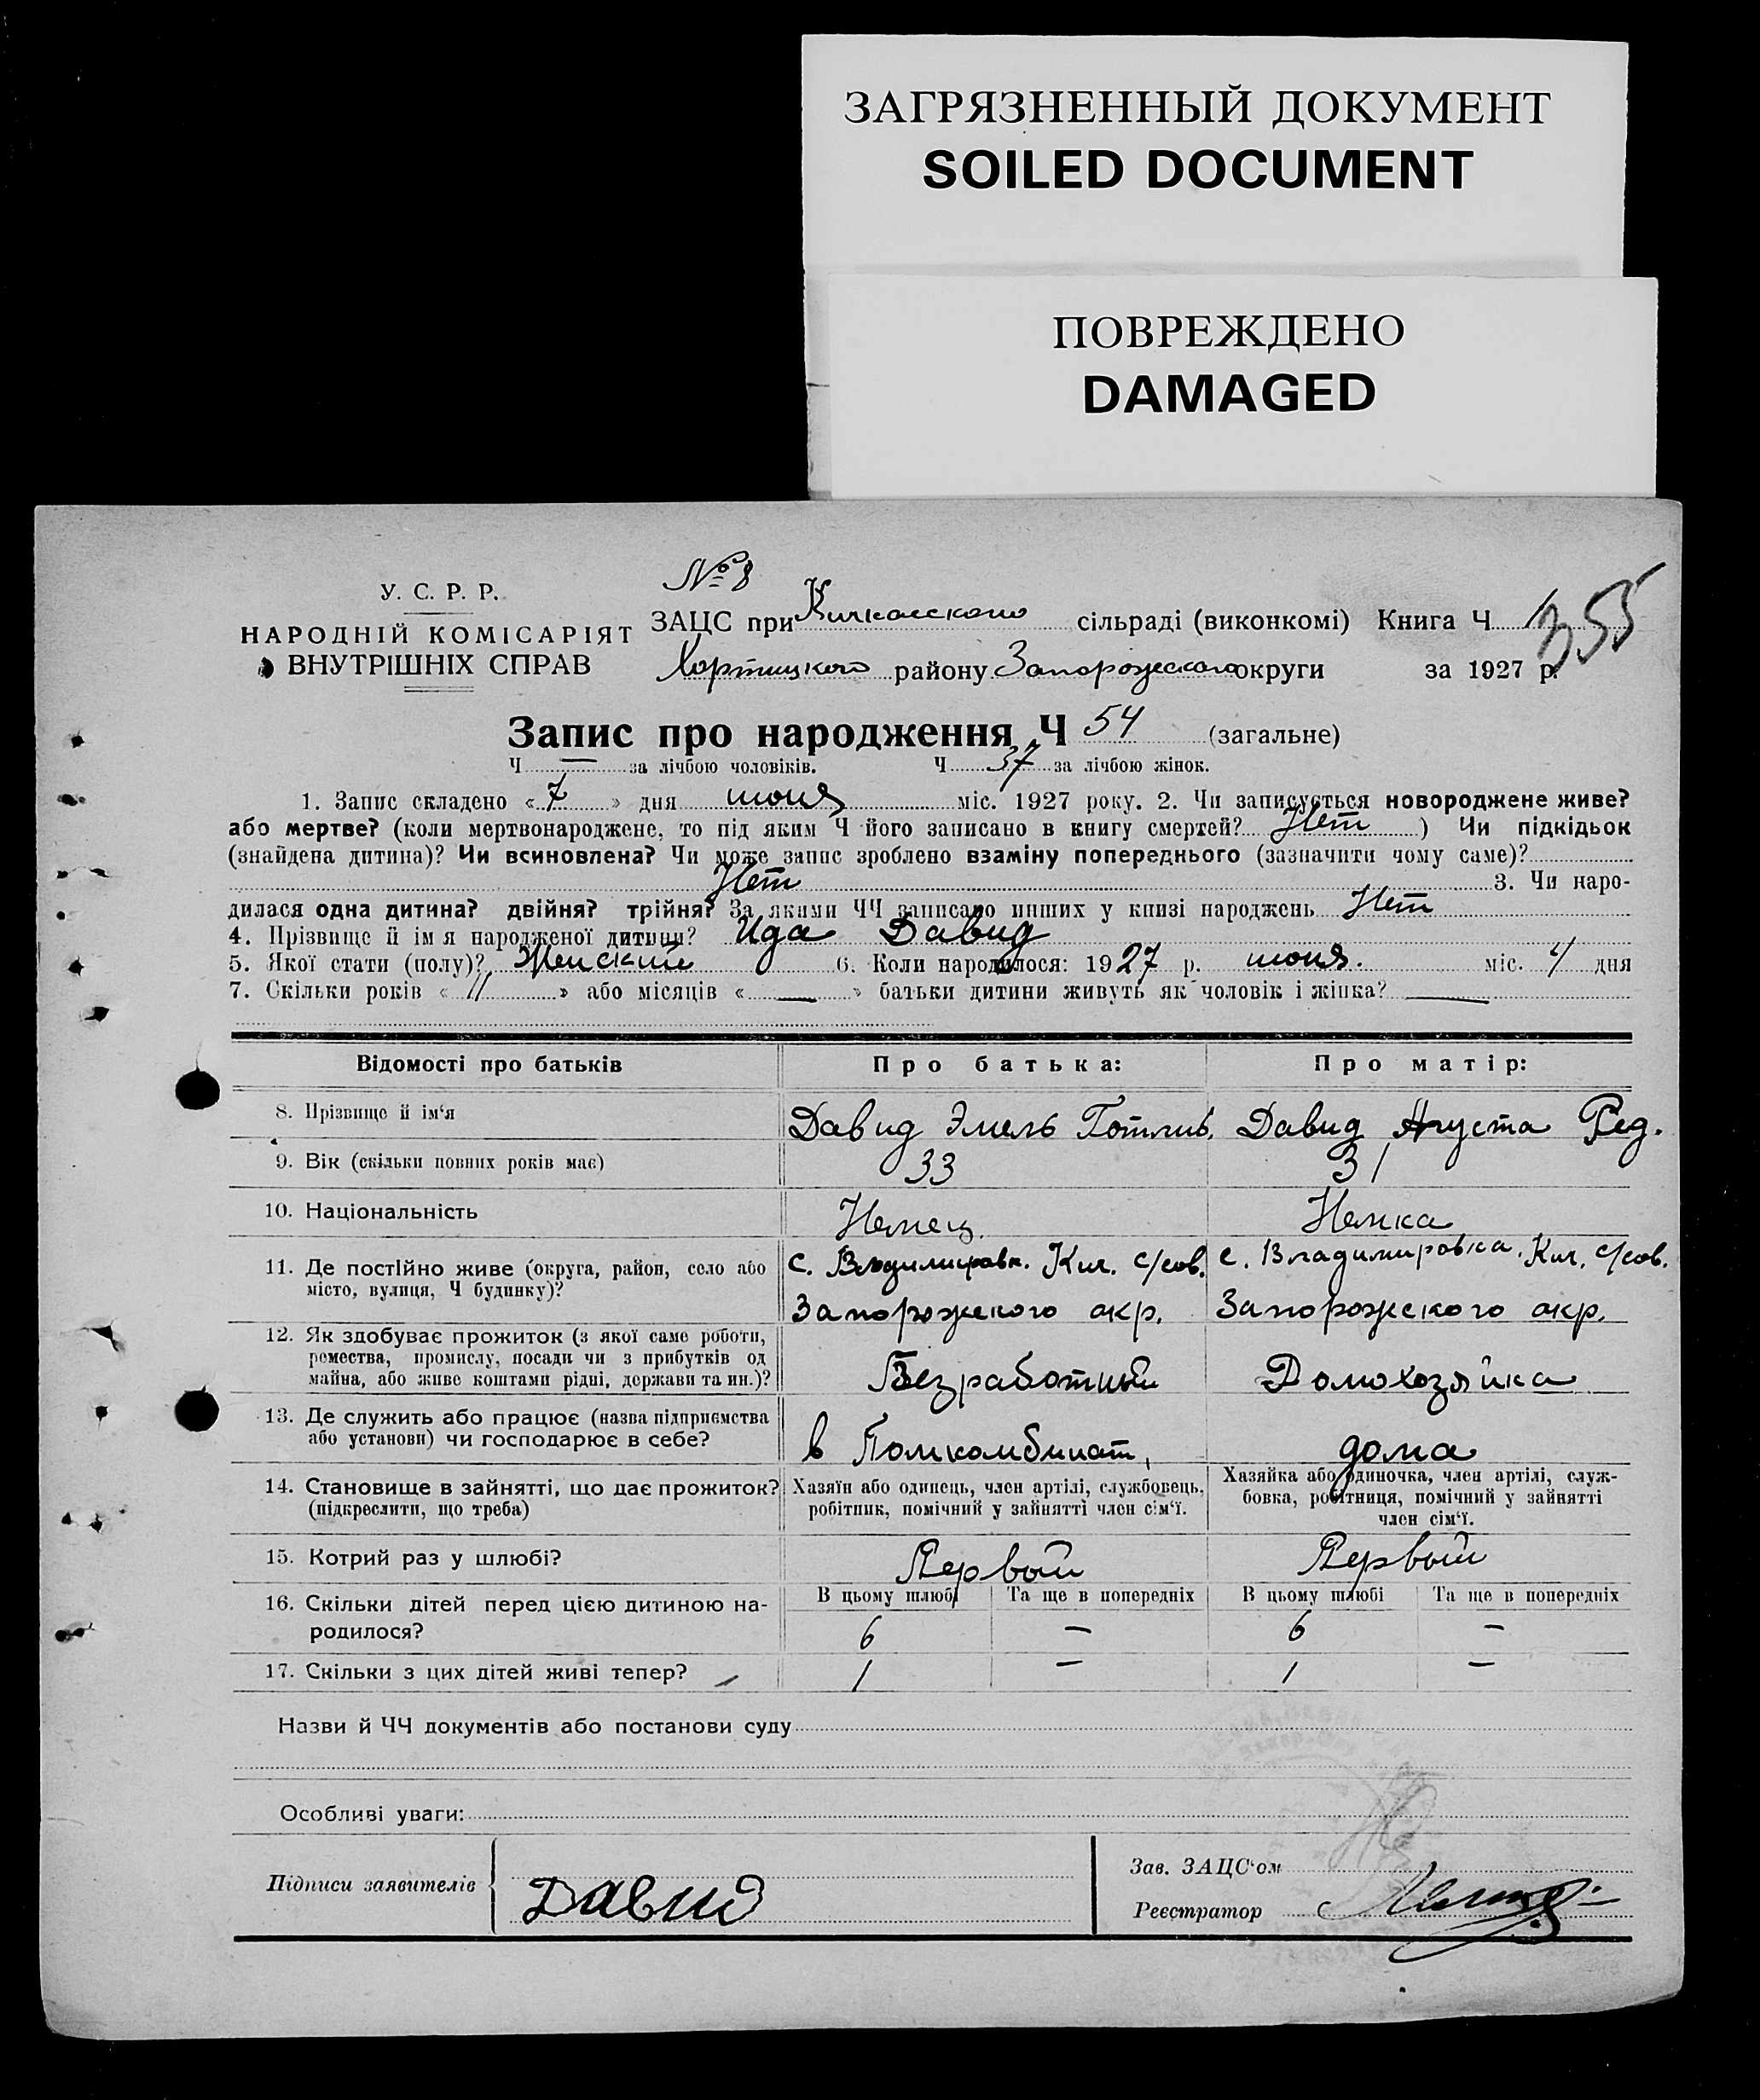 ЗАГРЯЗНЕННЫЙ ДОКУМЕНТ
SOILED DOCUMENT
ПОВРЕЖДЕНО
DAMAGED
У. С. Р. Р.
НАРОДНІЙ КОМІСАРІЯТ
ВНУТРІШНІХ СПРАВ
№ 8
ЗАЦС при Кичкасского сільраді (виконкомі) Книга Ч 1
355
Хортицкого району Запорожского округи за 1927 р.
Запис про народження Ч 54 (загальне)
Ч — за лічбою чоловіків. Ч 37 за лічбою жінок.
1. Запис складено « 7 » дня июня міс. 1927 року. 2. Чи записується новороджене живе?
або мертве? (коли мертвонароджене, то під яким Ч його записано в книгу смертей? Нет ) Чи підкідьок
(знайдена дитина)? Чи всиновлена? Чи може запис зроблено взаміну попереднього (зазначити чому саме)?
Нет 3. Чи наро-
дилася одна дитина? двійня? трійня? За якими ЧЧ записано инших у книзі народжень Нет
4. Прізвище й ім я народженої дитини? Ида Давид
5. Якої стати (полу)? Женский 6. Коли народилося: 1927 р. июня. міс. 4 дня
7. Скільки років « 11 » або місяців « — » батьки дитини живуть як чоловік і жінка? —
Відомості про батьків Про батька: Про матір:
8. Прізвище й ім‘я Давид Эмель Готлиб. Давид Агуста Ред.
9. Вік (скільки повних років має) 33 31
10. Національність Немец. Немка
11. Де постійно живе (округа, район, село або с. Владимировк. Кич. с/сов. с. Владимировка. Кич. с/сов.
місто, вулиця, Ч будинку)? Запорожского окр. Запорожского окр.
12. Як здобуває прожиток (з якої саме роботи,
ремества, промислу, посади чи з прибутків од
майна, або живе коштами рідні, держави та ин.)? Безработный Домохозяйка
13. Де служить або працює (назва підприємства
або установи) чи господарює в себе? в Помкомбинат, дома
14. Становище в зайнятті, що дає прожиток? Хазяїн або одинець, член артілі, службовець, Хазяйка або одиночка, член артілі, служ-
(підкреслити, що треба) робітник, помічний у зайнятті член сім‘ї. бовка, робітниця, помічний у зайнятті
член сім‘ї.
15. Котрий раз у шлюбі? Первый Первый
В цьому шлюбі Та ще в попередніх В цьому шлюбі Та ще в попередніх
16. Скільки дітей перед цією дитиною на-
родилося? 6 — 6 —
17. Скільки з цих дітей живі тепер? 1 — 1 —
Назви й ЧЧ документів або постанови суду
Особливі уваги:
Зав. ЗАЦС‘ом
Підписи заявителів Давид
Реєстратор